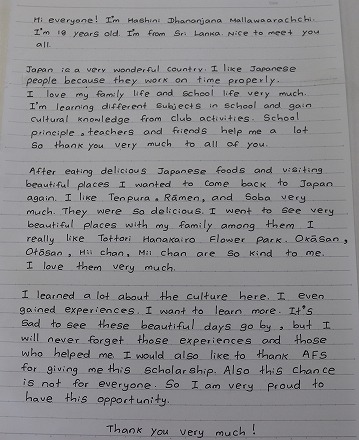 Hi everyone! I'm Hashini Dhananjana Mallawaarachchi.
I'm 18 years old. I'm from Sri Lanka. Nice to meet you
all.
Japan is a very wonderful country. I like Japanese
people because they work on time properly.
I love my family life and school life very much.
I'm learning different subjects in school and gain
cultural knowledge from club activities. School
principle, teachers and friends help me a lot
So thank you very much to all of you.
After eating delicious Japanese foods and visiting
beautiful places I wanted to come back to Japan
again. I like Tenpura, Rāmen, and Soba very
much. They were so delicious. I went to see very
beautiful places with my family among them I
really like Tottori Hanakairo Flower Park. Okāsan,
Otōsan, Hii chan, Mii chan are so kind to me.
I love them very much.
I learned a lot about the culture here. I even
gained experiences. I want to learn more. It's
sad to see these beautiful days go by, but I
will never forget those experiences and those
who helped me. I would also like to thank AFS
for giving me this scholarship. Also this chance
is not for everyone. So I am very proud to
have this opportunity.
Thank you very much!